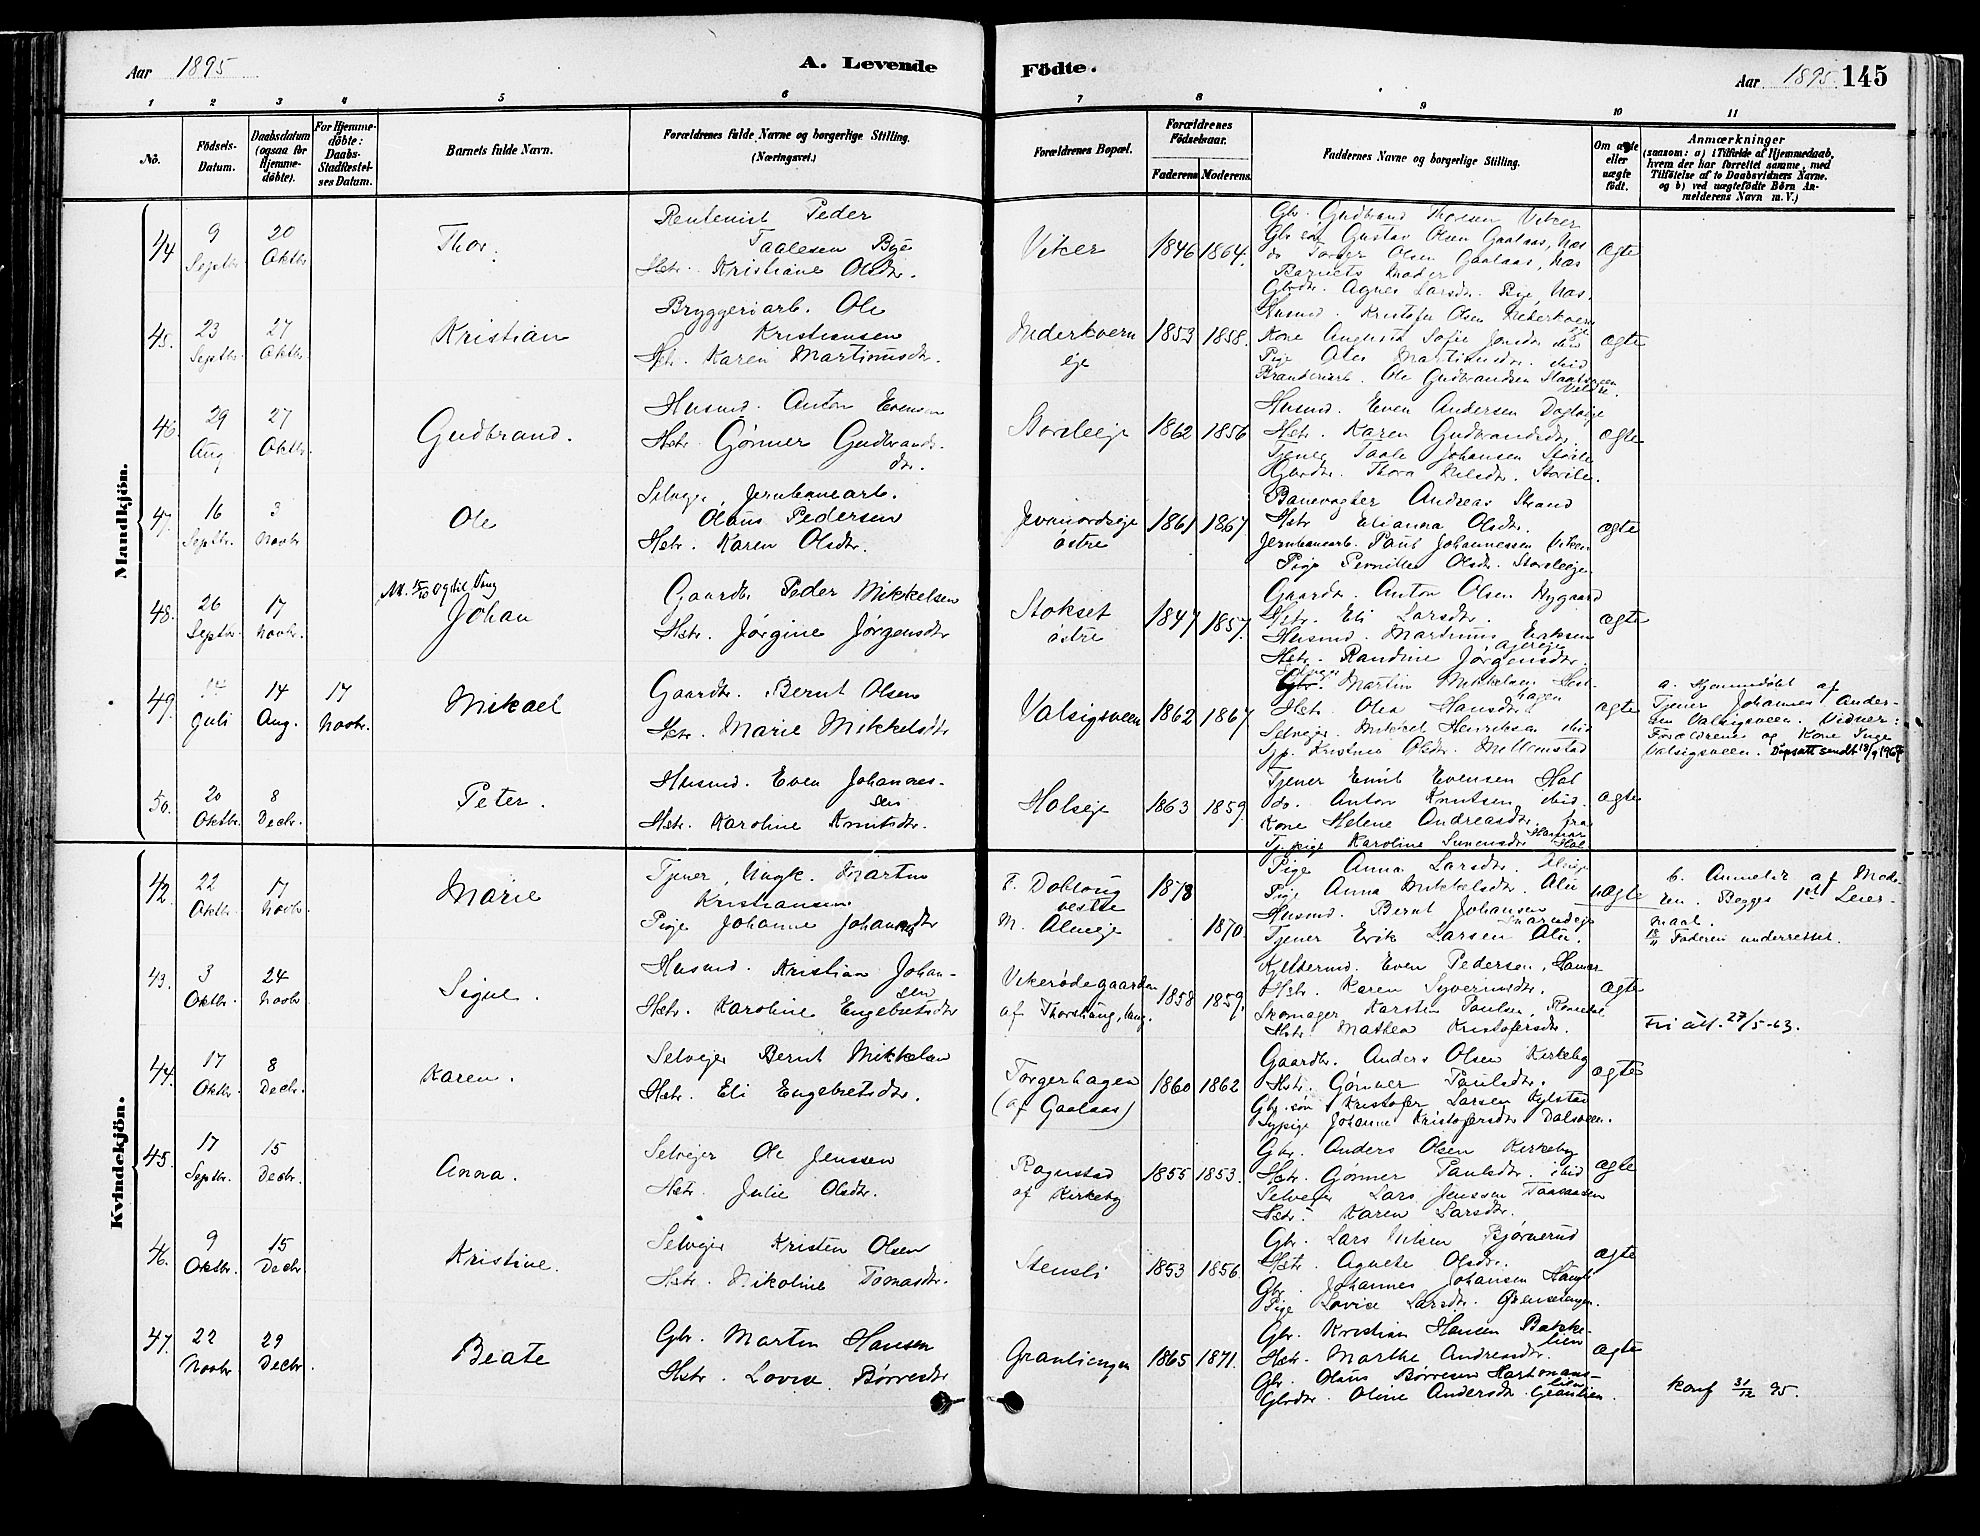 Aar 1895
A. Levende
Födte.
Aar 1895.
145
1 2 3 4 5 6 7 8 9 10 11
No.
Födsels-
Datum.
Daabsdatum
(ogsaa for
Hjemme-
döbte).
For Hjemme-
döbte:
Daabs-
Stadfæstel-
ses Datum.
Barnets fulde Navn.
Forældrenes fulde Navne og borgerlige Stilling.
(Næringsvei.)
Forældrenes Bopæl.
Forældrenes
Födselsaar.
Faderens
Moderens.
Faddernes Navne og borgerlige Stilling.
Om ægte
eller
uægte
födt.
Anmærkninger
(saasom: a) i Tilfælde af Hjemmedaab,
hvem der har forrettet samme, med
Tilföielse af to Daabsvidners Navne.
og b) ved uægtefödte Börn An-
melderens Navn m. V.)
Mandkjön.
44
9
Septbr.
20
Oktbr.
Thor.
Rentenist Peder
Taalesen Bye
Hstr. Kristiane Olsdtr.
Viker
1846
1864.
Gbr. Gudbrand Thoresen Viker
Gbr.søn Gustav Olsen Gaalaas, Næs
do Torger Olsen Gaalaas, Næs
Barnets Moder
Gbrdtr. Agnes Larsdtr. Bye, Næs.
ægte
45.
23
Septbr.
27
Oktbr.
Kristian
Bryggeriarb. Ole
Kristiansen
Hstr. Karen Martinusdtr.
Nederkvern
eje
1853
1858.
Husmd. Kristofer Olsen Nederkvern
eje
Kone Augusta Sofie Jonsdtr ibid
Pige Olea Martinusdtr. ibid
Brænderiarb. Ole Gudbrandsen
ægte
46.
29
Aug.
27
Oktbr.
Gudbrand.
Husmd. Anton Evensen
Hstr. Gønner Gudbrands-
dtr.
Storsleeje
1862
1856
Husmd. Even Andersen
Hstr. Karen Gudbrandsdtr.
Tjener Taale Johansen
Gbrdtr. Thora Nilsdtr.
ægte
47.
16
Septbr.
3
Novbr.
Ole
Selvejer, Jernbanearb.
Olaus Pedersen
Hstr. Karen Olsdtr.
Jevnordseje
østre
1861
1867
Banevogter Andreas Strand
Hstr Elianna Olsdtr.
Jernbanearb. Paul Johannessen Viken
Pige Pernille Olsdtr. Storsleejen
ægte
48.
26
Septbr.
17
Novbr.
Johan
Gaardbr Peder Mikkelsen
Hstr. Jørgine Jørgensdtr
Stokset
østre
1847
1857.
Gaardbr. Anton Olsen Nygaard
Hstr. Eli Larsdtr.
Husmd. Martinus Eriksen
Hstr. Randine Jørgensdtr.
ægte
49.
14
Juli
14
Aug.
17
Novbr.
Mikael
Gaardbr. Bernt Olsen
Hstr. Marie Mikkelsdtr
Valsigsveen
1862
1867
Selvejer
Gbr. Martin Mikkelsen Hest-
hagen
Hstr. Olea Hansdtr
Selvejer. Mikkel Henriksen ibid
Tjp. Kristine Olsdtr. Mellemstad
ægte
a. Hjemmedøbt af
Tjener Johannes Ander-
sen Valsigsveen. Vidner:
Forældrene og Kone Inge
Valsigsveen. Dåpsatt sendt 18/9 1967
50.
20
Oktbr.
8
Decbr.
Peter.
Husmd. Even Johannes-
sen
Hstr. Karoline Knutsdtr.
Holseje
1863
1859.
Tjener Emil Evensen Hol
do. Anton Knutsen ibid.
Kone Helene Andreasdtr. fra
Hamar
Tj.pige Karoline Simensdtr Hol
ægte
Kvindekjön.
42
22
Oktbr.
17
Novbr.
Marie
Tjener, Ungk. Martin
Kristiansen
Pige Johanne Johansdtr
F. Dobloug
vestre
M. Alueje
1873
1870.
Pige Anna Larsdtr. Alueje
Pige Anna Mikkelsdtr. Alu
Husmd. Bernt Johansen
Tjener Erik Larsen Alu.
uægte
b. Anmeldt af Mode-
ren. Begges 1ste Leier-
maal.
18/11 Faderen underrettet.
43.
3
Oktbr.
24
Novbr.
Signe.
Husmd. Kristian Johan-
sen
Hstr. Karoline Engebretsdtr
Vikerødegaarden
af Thorshaug, Vang.
1858
1859.
Kjeldermd. Even Pedersen, Hamar
Hstr. Karen Syversdtr.
Skomager Karsten Paulsen, Romedal
Hstr. Mathea Kristofersdtr.
ægte
Fri att. 27/5-63.
44.
17
Oktbr.
8
Decbr.
Karen.
Selvejer Bernt Mikkelsen
Hstr. Eli Engebretsdtr.
Torgerhagen
(af Gaalaas)
1860
1862
Gaardbr. Anders Olsen Kirkeby
Hstr. Gønner Paulsdtr.
Gbr.søn Kristofer Larsen Kylstad
Sypige Johanne Kristofersdtr Dalsveen.
ægte
45.
17
Septbr.
15
Decbr.
Anna.
Selvejer Ole Jenssen
Hstr. Julie Olsdtr.
Rognstad
af Kirkeby
1855
1853.
Gbr. Anders Olsen Kirkeby
Hstr. Gønner Paulsdtr. ibid
Selvejer Lars Jenssen
Hstr. Karen Larsdtr.
ægte
46.
9
Oktbr.
15
Decbr.
Kristine.
Selvejer Kristen Olsen
Hstr. Nikoline Tomasdtr.
Stensli
1853
1856.
Gbr. Lars Nilsen Bjørnerud
Hstr. Agnete Olsdtr.
Gbr. Johannes Johansen
Pige Lovise Larsdtr. Grønsengen.
ægte
47.
22
Novbr
29
Decbr.
Beate
Gbr. Martin Hansen
Hstr. Lovise Børresdtr
Granliengen
1865
1871.
Gbr. Kristian Hansen Bakke-
lien
Hstr. Marthe Andreasdtr.
Gbr. Olaus Børresen Hartmans-
lien
Gbrdtr. Oline Andersdtr Granlien.
ægte
konf 31/12 95.